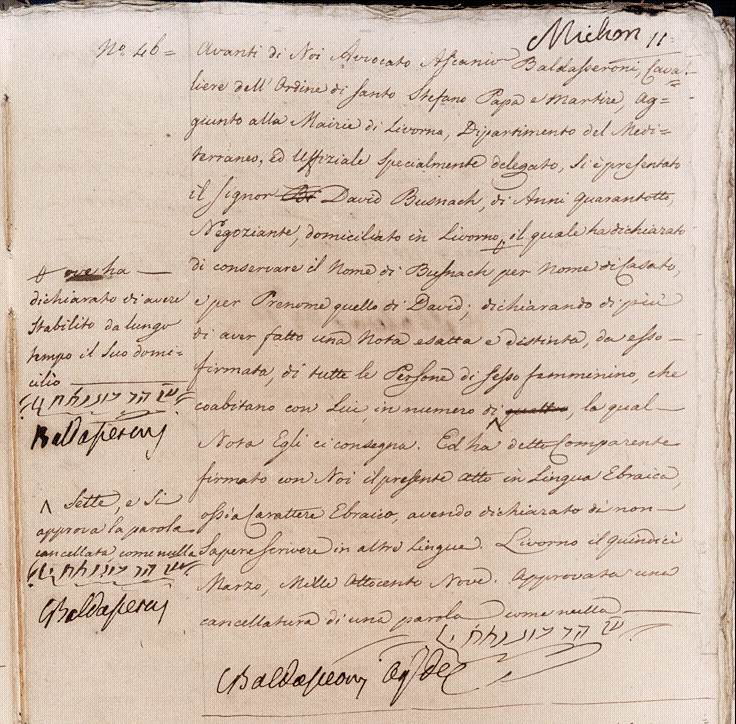 Michon 11
N.º 46 =
Avanti di Noi Avvocato Ascanio Baldasseroni, Caval=
liere dell'Ordine di Santo Stefano Papa e Martire, Ag=
giunto alla Mairie di Livorna, Dipartimento del Medi=
terraneo, ed Uffiziale Specialmente delegato, Si è presentato
il Signor David Busnach, di Anni quarantotto,
Negoziante, domiciliato in Livorno, il quale ha dichiarato
di conservare il Nome di Busnach per Nome di Casato,
e per Prenome quello di David; dichiarando di più
di aver fatto una Nota esatta e distinta, da esso
firmata, di tutte le Persone di sesso femminino, che
coabitano con Lui, in numero di quattro, la qual
Nota Egli ci consegna. Ed ha detto Comparente
firmato con Noi il presente Atto in Lingua Ebraica,
ossia Carattere Ebraico, avendo dichiarato di non
Sapere scrivere in altre Lingue. Livorno il quindici
Marzo, Mille Ottocento Nove. Approvata una
cancellatura di una parola come nulla
Baldasseroni
ove ha
dichiarato di avere
Stabilito da lungo
tempo il Suo domi=
cilio
Baldasseroni
Sette, e Si
approva la parola
cancellata come nulla
Baldasseroni